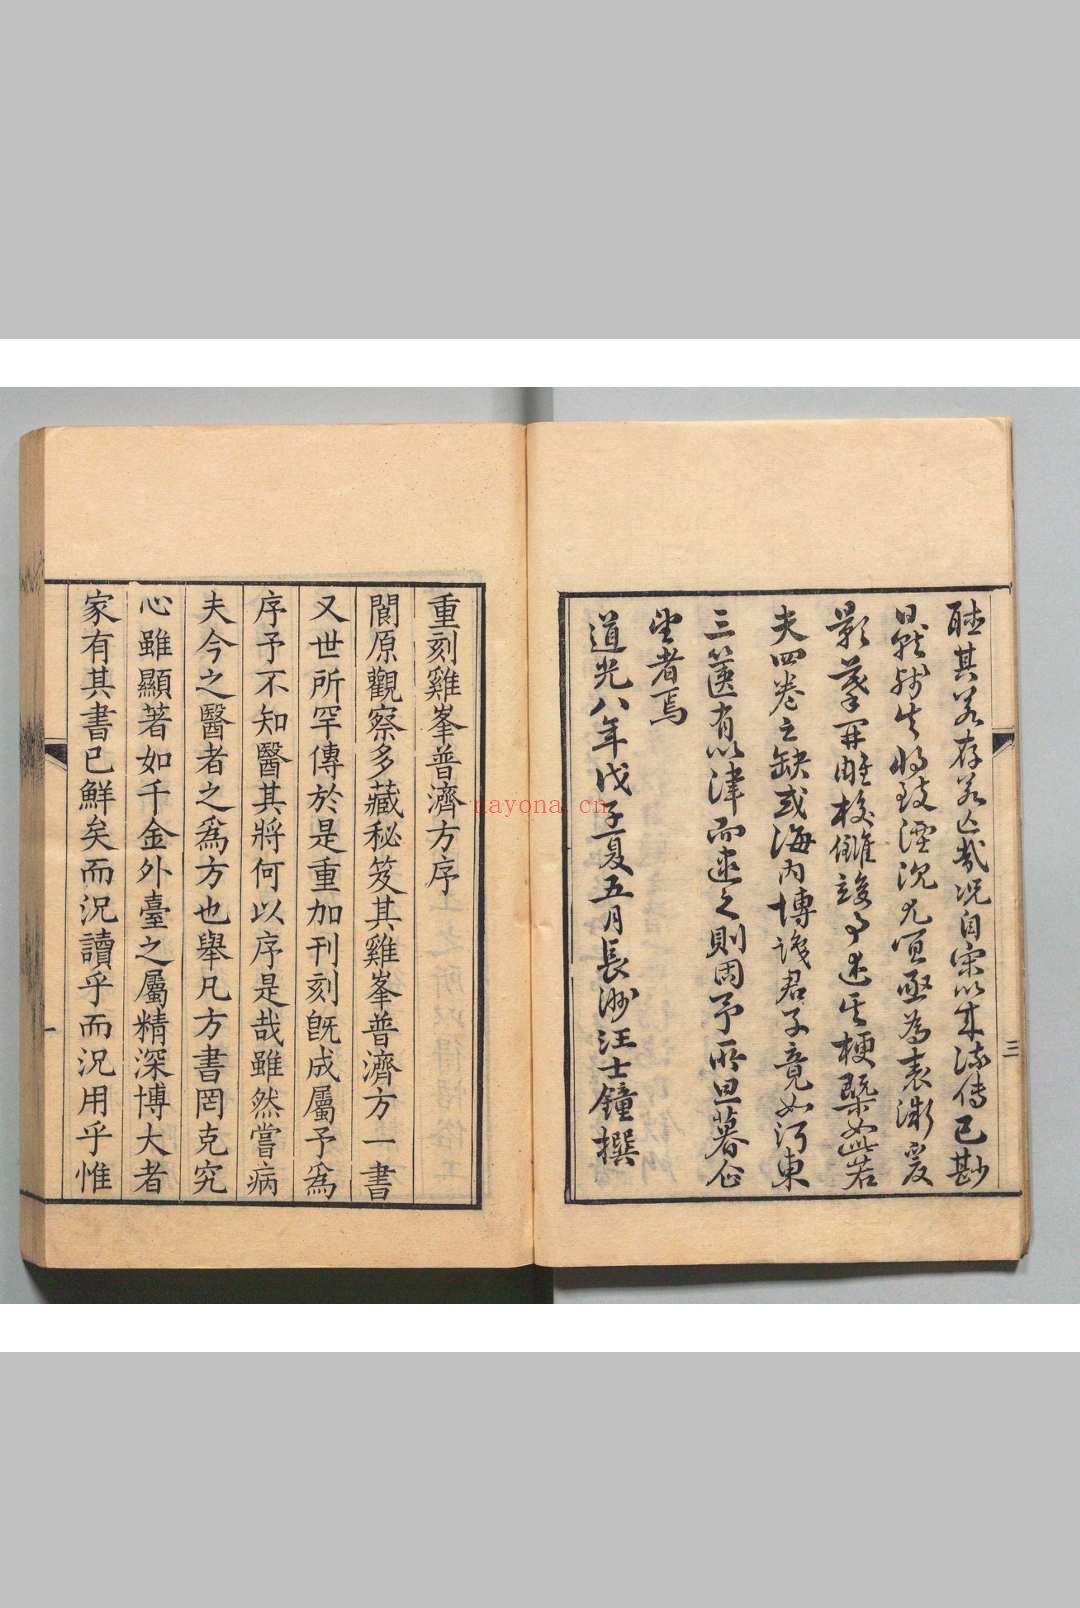 聽其若存若亡哉況自宋以來流傳已尠
三
影摹開雕校讎竣事述其梗槩如此若
夫四卷之缺或海內博識君子竟如河東
三篋有以津而逮之則固予所旦暮企
望者焉
道光八年戊子夏五月長沙汪士鐘撰
重刻雞峯普濟方序
閬原觀察多藏秘笈其雞峯普濟方一書
又世所罕傳於是重加刊刻既成屬予爲
序予不知醫其將何以序是哉雖然嘗病
夫今之醫者之爲方也舉凡方書罔克究
心雖顯著如千金外臺之屬精深博大者
家有其書已鮮矣而況讀乎而況用乎惟
nayona.cn